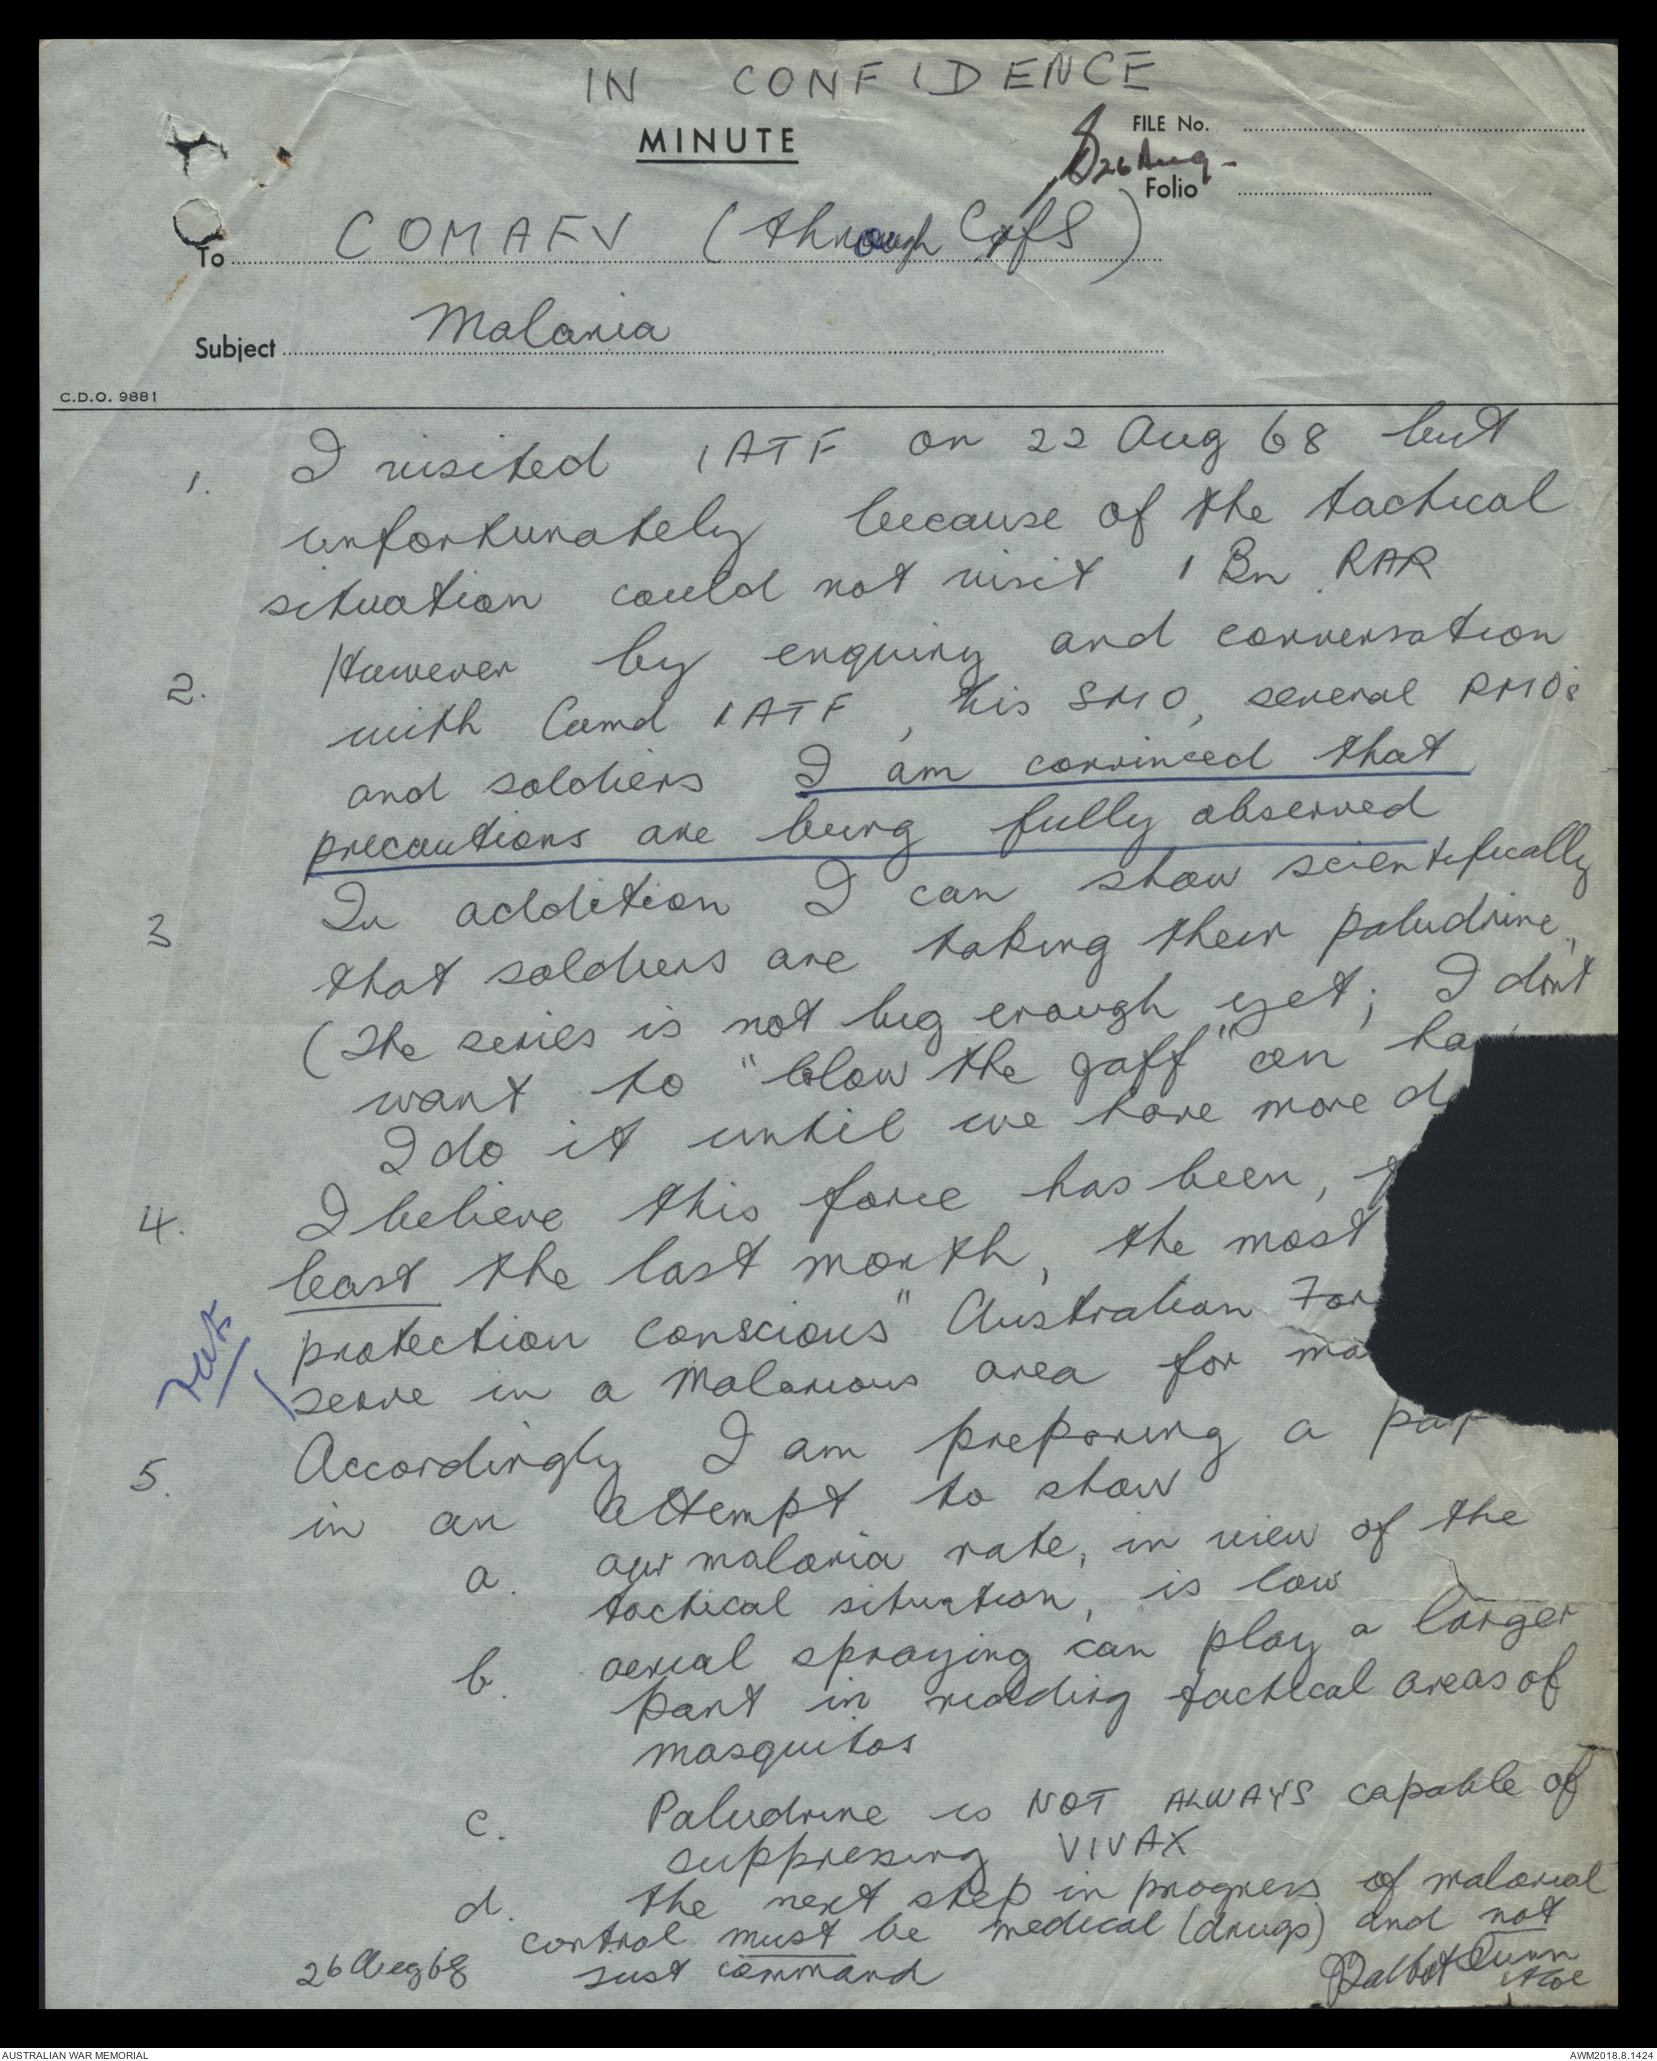 IN CONFIDENCE
MINUTE
FILE No.
26 Aug
Folio
To COMAFV (through CofS)
Subject Malaria
C.D.O. 9881
1. I visited 1ATF on 22 Aug 68 but
unfortunately because of the tactical
situation could not visit 1 Bn RAR
2. However by enquiry and conversation
with Comd 1ATF, his SMO, several RMOs
and soldiers I am convinced that
precautions are being fully observed
3 In addition I can show scientifically
that soldiers are taking their paludrine,
(The series is not big enough yet; I dont
want to "blow the gaff" on
I do it until we have more
4. I believe this force has been,
least the last month, the most
protection conscious" Australian For
serve in a malarious area for
5. Accordingly I am preparing a
in an attempt to show
a. our malaria rate, in view of the
tactical situation, is low
b. aerial spraying can play a larger
part in ridding tactical areas of
mosquitos
c. Paludrine is NOT ALWAYS capable of
suppressing VIVAX
d. the next step in progress of malarial
control must be medical (drugs) and not
just command
26 Aug 68
Talbot Dunn
AUSTRALIAN WAR MEMORIAL
AWM2018.8.1424